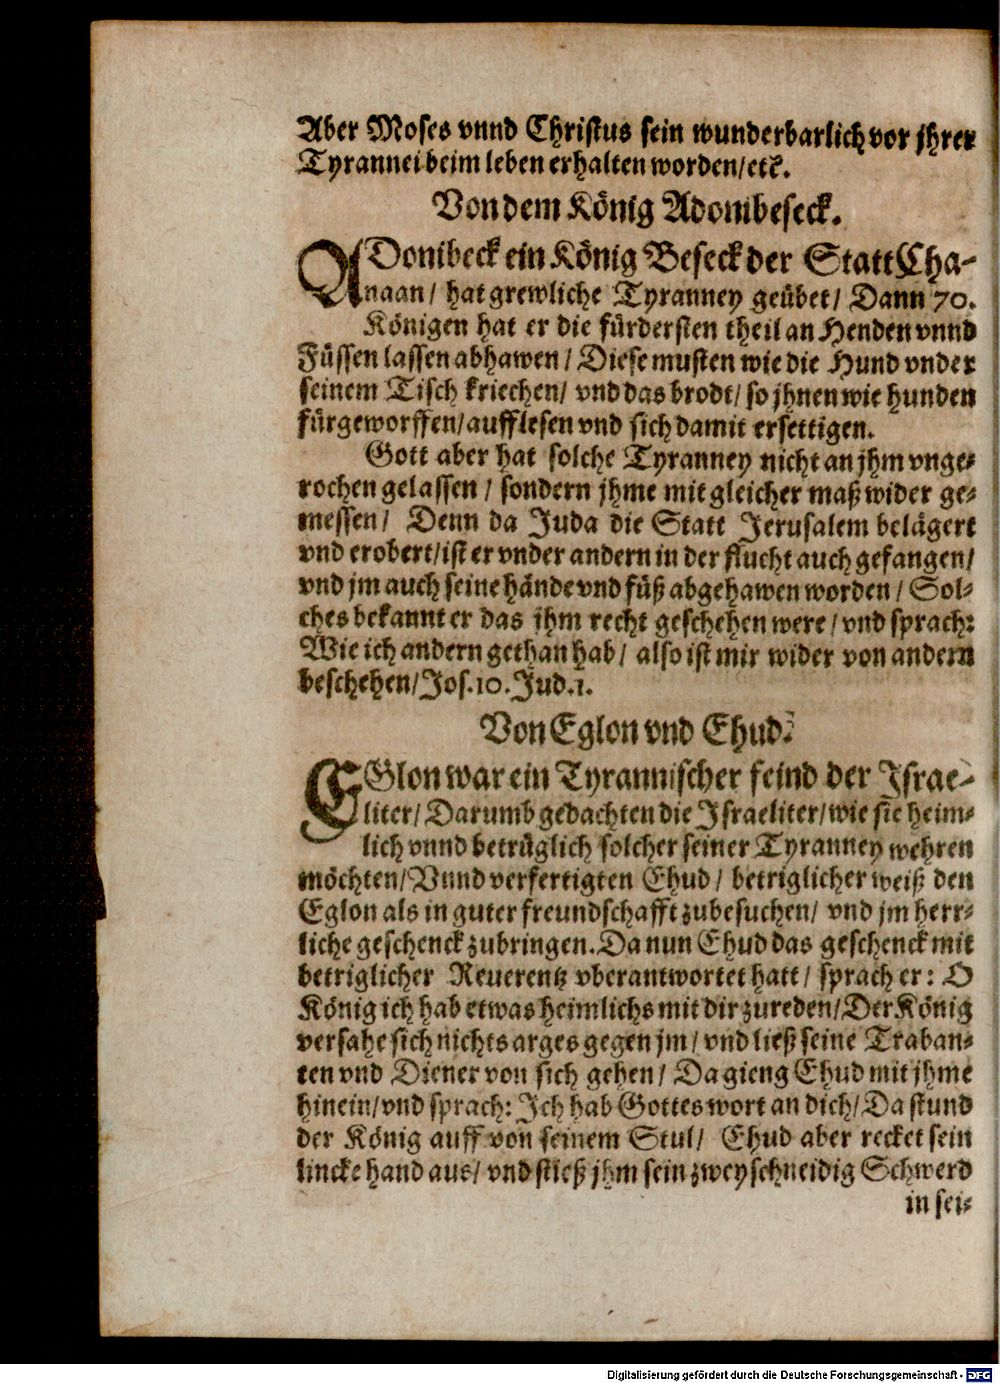 Aber Moses vnnd Christus sein wunderbarlich vor jhrer
Tyrannei beim leben erhalten worden/etc.
Von dem König Adonibeseck.
ADonibeck ein König Beseck der Statt Cha-
naan/ hat grewliche Tyranney geübet/ Dann 70.
Königen hat er die fürdersten theil an Henden vnnd
Füssen lassen abhawen/ Diese musten wie die Hund vnder
seinem Tisch kriechen/ vnd das brodt/ so jhnen wie hunden
fürgeworffen/ aufflesen vnd sich damit ersettigen.
Gott aber hat solche Tyranney nicht an jhm vnge-
rochen gelassen/ sondern jhme mit gleicher maß wider ge-
messen/ Denn da Juda die Statt Jerusalem belägert
vnd erobert/ ist er vnder andern in der flucht auch gefangen/
vnd jm auch seine hände vnd füß abgehawen worden/ Sol-
ches bekannt er das jhm recht geschehen were/ vnd sprach:
Wie ich andern gethan hab/ also ist mir wider von andern
beschehen/ Jos.10. Jud.1.
Von Eglon vnd Ehud.
EGlon war ein Tyrannischer feind der Israe-
liter/ Darumb gedachten die Israeliter/ wie sie heim-
lich vnnd betrüglich solcher seiner Tyranney wehren
möchten/ Vnnd verfertigten Ehud/ betriglicher weiß den
Eglon als in guter freundschafft zubesuchen/ vnd jm herr-
liche geschenck zubringen. Da nun Ehud das geschenck mit
betriglicher Reuerentz vberantwortet hatt/ sprach er: O
König ich hab etwas heimlichs mit dir zureden/ Der König
versahe sich nichts arges gegen jm/ vnd ließ seine Traban-
ten vnd Diener von sich gehen/ Da gieng Ehud mit jhme
hinein/ vnd sprach: Ich hab Gottes wort an dich/ Da stund
der König auff von seinem Stul/ Ehud aber recket sein
lincke hand aus/ vnd stieß jhm sein zweyschneidig Schwerd
in sei-
Digitalisierung gefördert durch die Deutsche Forschungsgemeinschaft - DFG